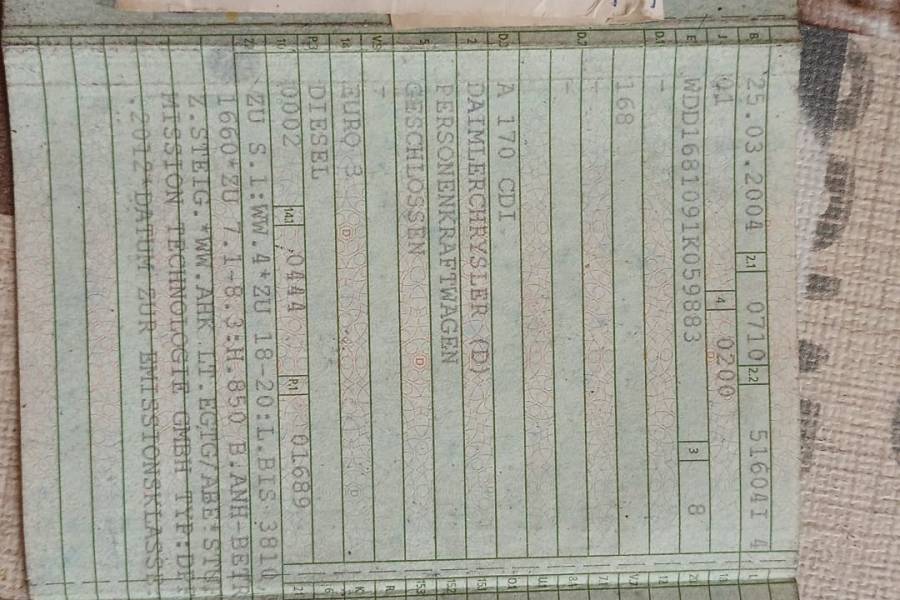 B 25.03.2004 2.1 0710 2.2 516041 4
J 01 4 0200
E WDD1681091K059883 3 8
D.1 -
168
D.2 -
-
-
D.3 A 170 CDI
2 DAIMLERCHRYSLER (D)
PERSONENKRAFTWAGEN
5 GESCHLOSSEN
V.9 -
14 EURO 3
P.3 DIESEL
10 0002 14.1 0444 P.1 01689
ZU S.1:WW.4*ZU 18-20:L.BIS 3810,
1660*ZU 7.1-8.3:H.850 B.ANH-BETR
Z.STEIG.*WW.AHK LT.EGTG/ABE*
MISSION TECHNOLOGIE GMBH TYP:
.2012*DATUM ZUR EMISSIONKLASSE